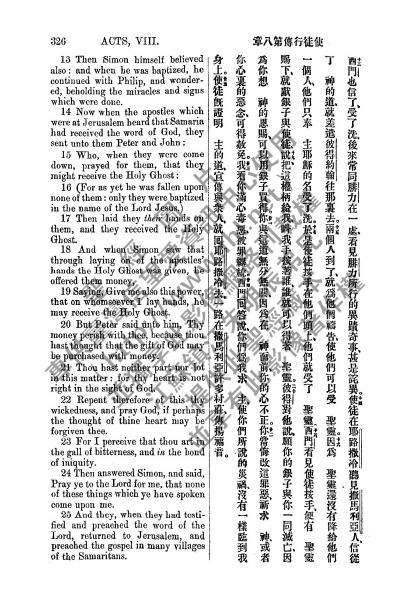 326 ACTS, VIII.
13 Then Simon himself believed
also: and when he was baptized, he
continued with Philip, and wonder-
ed, beholding the miracles and signs
which were done.
14 Now when the apostles which
were at Jerusalem heard that Samaria
had received the word of God, they
sent unto them Peter and John:
15 Who, when they were come
down, prayed for them, that they
might receive the Holy Ghost:
16 (For as yet he was fallen upon
none of them: only they were baptized
in the name of the Lord Jesus.)
17 Then laid they their hands on
them, and they received the Holy
Ghost.
18 And when Simon saw that
through laying on of the apostles'
hands the Holy Ghost was given, he
offered them money,
19 Saying, Give me also this power,
that on whomsoever I lay hands, he
may receive the Holy Ghost.
20 But Peter said unto him, Thy
money perish with thee, because thou
hast thought that the gift of God may
be purchased with money.
21 Thou hast neither part nor lot
in this matter: for thy heart is not
right in the sight of God.
22 Repent therefore of this thy
wickedness, and pray God, if perhaps
the thought of thine heart may be
forgiven thee.
23 For I perceive that thou art in
the gall of bitterness, and in the bond
of iniquity.
24 Then answered Simon, and said,
Pray ye to the Lord for me, that none
of these things which ye have spoken
come upon me.
25 And they, when they had testi-
fied and preached the word of the
Lord, returned to Jerusalem, and
preached the gospel in many villages
of the Samaritans.
使徒行傳第八章
西門也信了受了洗後來常同腓力在一處看見腓力所行的異蹟奇事甚是詫異使徒在耶路撒冷聽見撒馬利亞人信從
了 神的道就差遣彼得約翰往那裏去兩個人到了就為他們禱告使他們可以受 聖靈因為 聖靈還沒有降給他們
一個人他們只奉 主耶穌的名受了洗於是使徒按手在他們頭上他們就受了 聖靈西門看見使徒按手便有 聖靈
賜下就獻銀子與使徒說把這權柄給我叫我手按著誰誰就可以得著 聖靈彼得對他說願你的銀子與你一同滅亡因
為你想 神的恩賜可以用銀子買得你與這道無分無關因為在 神面前你的心不正你當悔改這罪惡祈求 神或者
你心裏的惡念可得赦免我看你滿心毒恨被罪惡綑綁西門回答說你們為我求 主使你們所說的災禍沒有一樣臨到我
身上使徒既證明 主的道宣傳與衆人就回耶路撒冷去一路在撒馬利亞許多村莊傳揚福音。